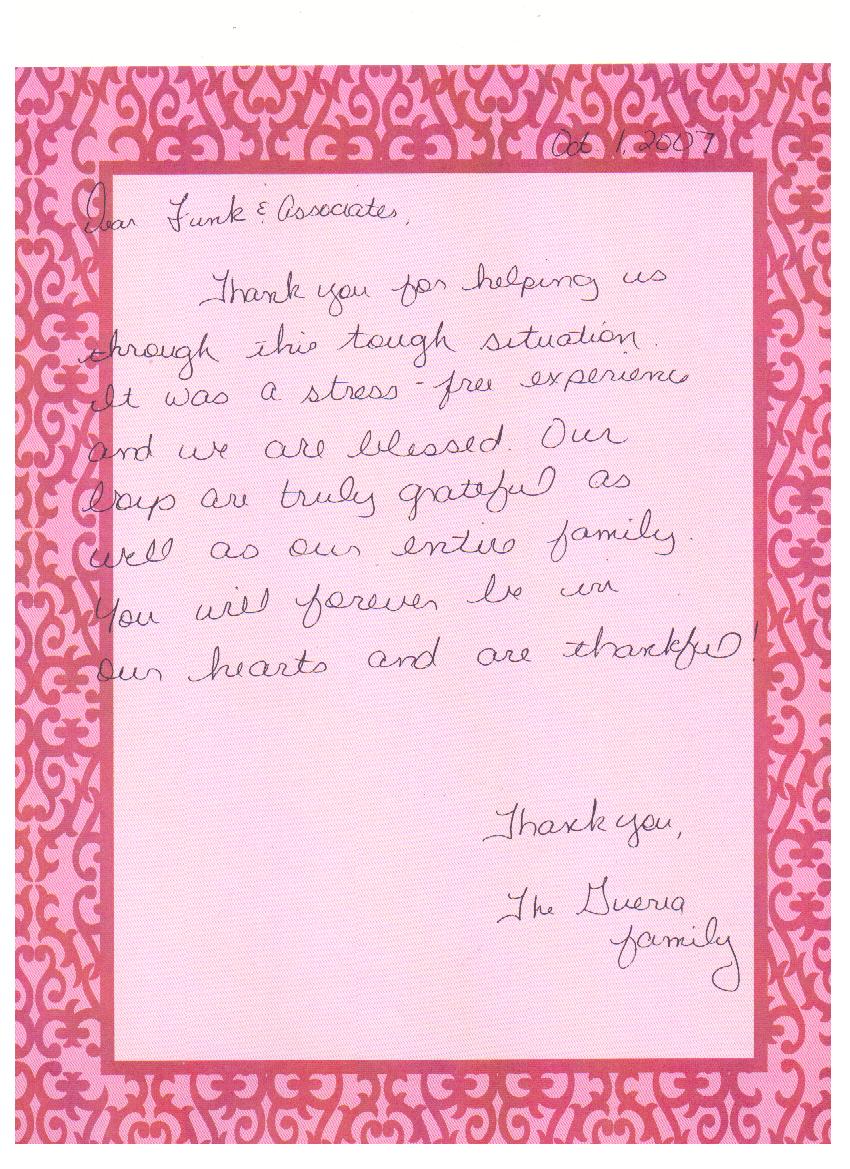 Oct. 1, 2007
Dear Funk & Associates,
Thank you for helping us
through this tough situation.
It was a stress-free experience
and we are blessed. Our
boys are truly grateful as
well as our entire family.
You will forever be in
our hearts and are thankful!
Thank you,
The Guerra
family